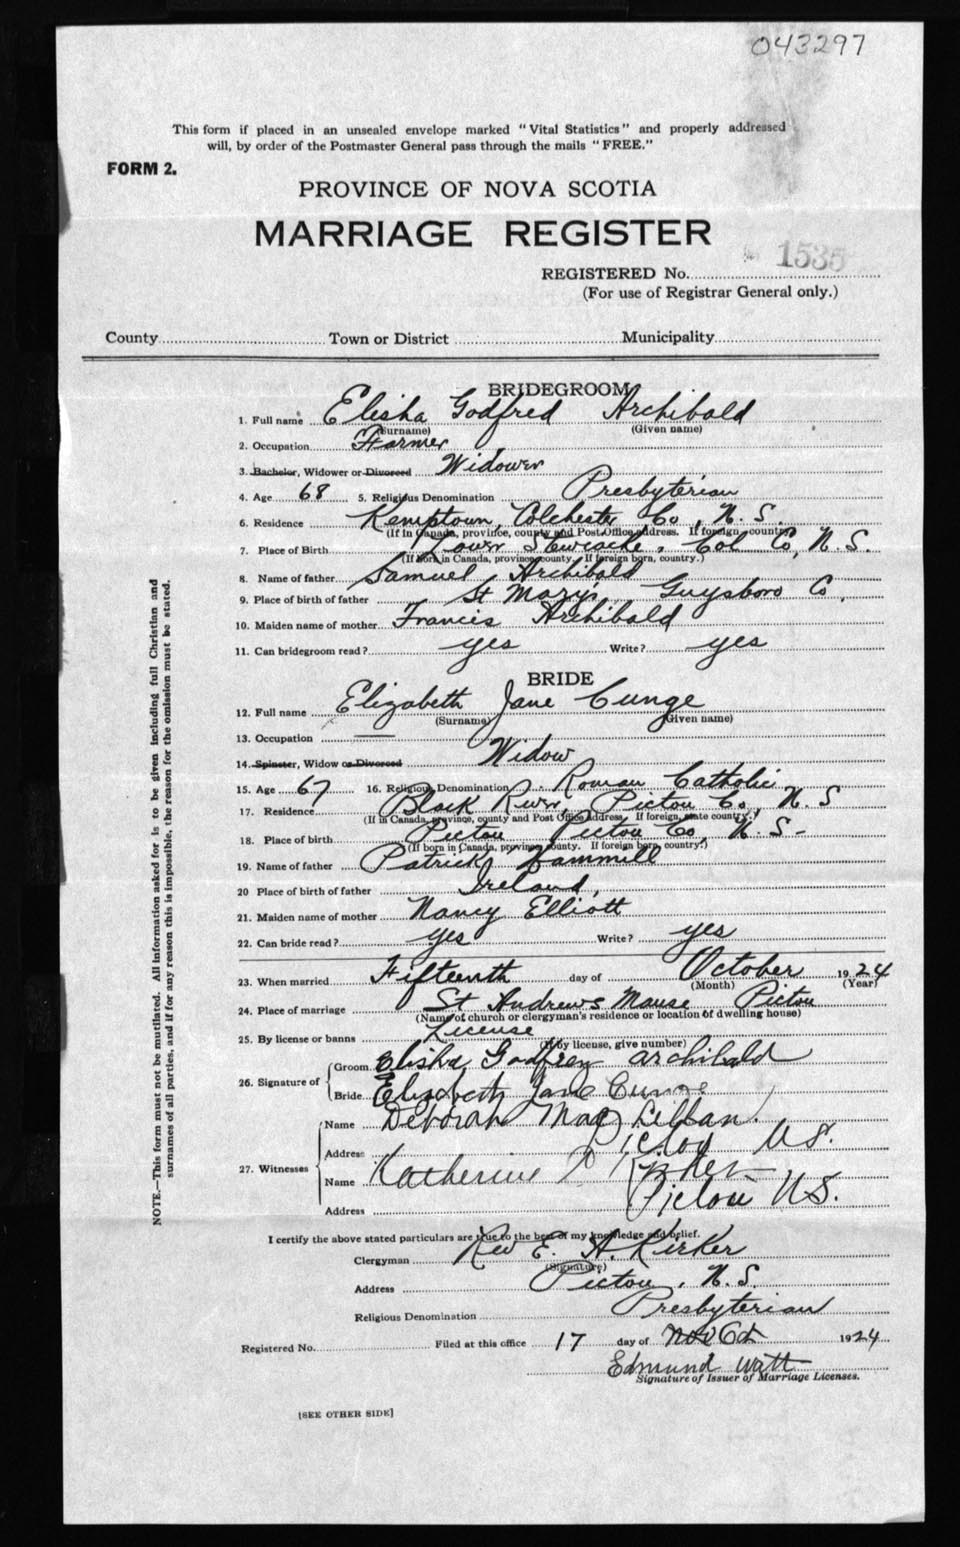 043297
This form if placed in an unsealed envelope marked "Vital Statistics" and properly addressed
will, by order of the Postmaster General pass through the mails "FREE."
FORM 2.
PROVINCE OF NOVA SCOTIA
MARRIAGE REGISTER
REGISTERED No. 1535
(For use of Registrar General only.)
County Town or District Municipality
BRIDEGROOM
1. Full name Elisha Godfred Archibald
(Surname) (Given name)
2. Occupation Farmer
3. Bachelor, Widower or Divorced Widower
4. Age 68 5. Religious Denomination Presbyterian
6. Residence Kemptown, Colchester Co, N. S.
(If in Canada, province, county and Post Office address. If foreign country)
7. Place of Birth Lower Stewiacke, Col Co, N. S.
(If born in Canada, province, county. If foreign born, country.)
8. Name of father Samuel Archibald
9. Place of birth of father St Marys Guysboro Co,
10. Maiden name of mother Francis Archibald
11. Can bridegroom read? yes Write? yes
BRIDE
12. Full name Elizabeth Jane Cunge
(Surname) (Given name)
13. Occupation —
14. Spinster, Widow or Divorced Widow
15. Age 67 16. Religious Denomination Roman Catholic
17. Residence Black River, Pictou Co, N. S
(If in Canada, province, county and Post Office Address. If foreign, state country.)
18. Place of birth Pictou Pictou Co, N. S-
(If born in Canada, province county. If foreign born, country.)
19. Name of father Patrick Hammill
20 Place of birth of father Ireland,
21. Maiden name of mother Nancy Elliott
22. Can bride read? yes Write? yes
23. When married Fifteenth day of October 1924
(Month) (Year)
24. Place of marriage St Andrews Manse Pictou
(Name of church or clergyman's residence or location of dwelling house)
25. By license or banns License
(If by license, give number)
26. Signature of Groom Elisha Godfrey archibald
Bride Elizabeth Jane Cunge
27. Witnesses Name Deborah Mac Lellan
Address Pictou N.S.
Name Katherine Kirker
Address Pictou N.S.
I certify the above stated particulars are true to the best of my knowledge and belief.
Clergyman Rev E. A. Kirker
(Signature)
Address Pictou, N. S.
Religious Denomination Presbyterian
Registered No. Filed at this office 17 day of Nov Oct 1924
Edmund Watt
Signature of Issuer of Marriage Licenses.
[SEE OTHER SIDE]
NOTE.—This form must not be mutilated. All information asked for is to be given including full Christian and
surnames of all parties, and if for any reason this is impossible, the reason for the omission must be stated.